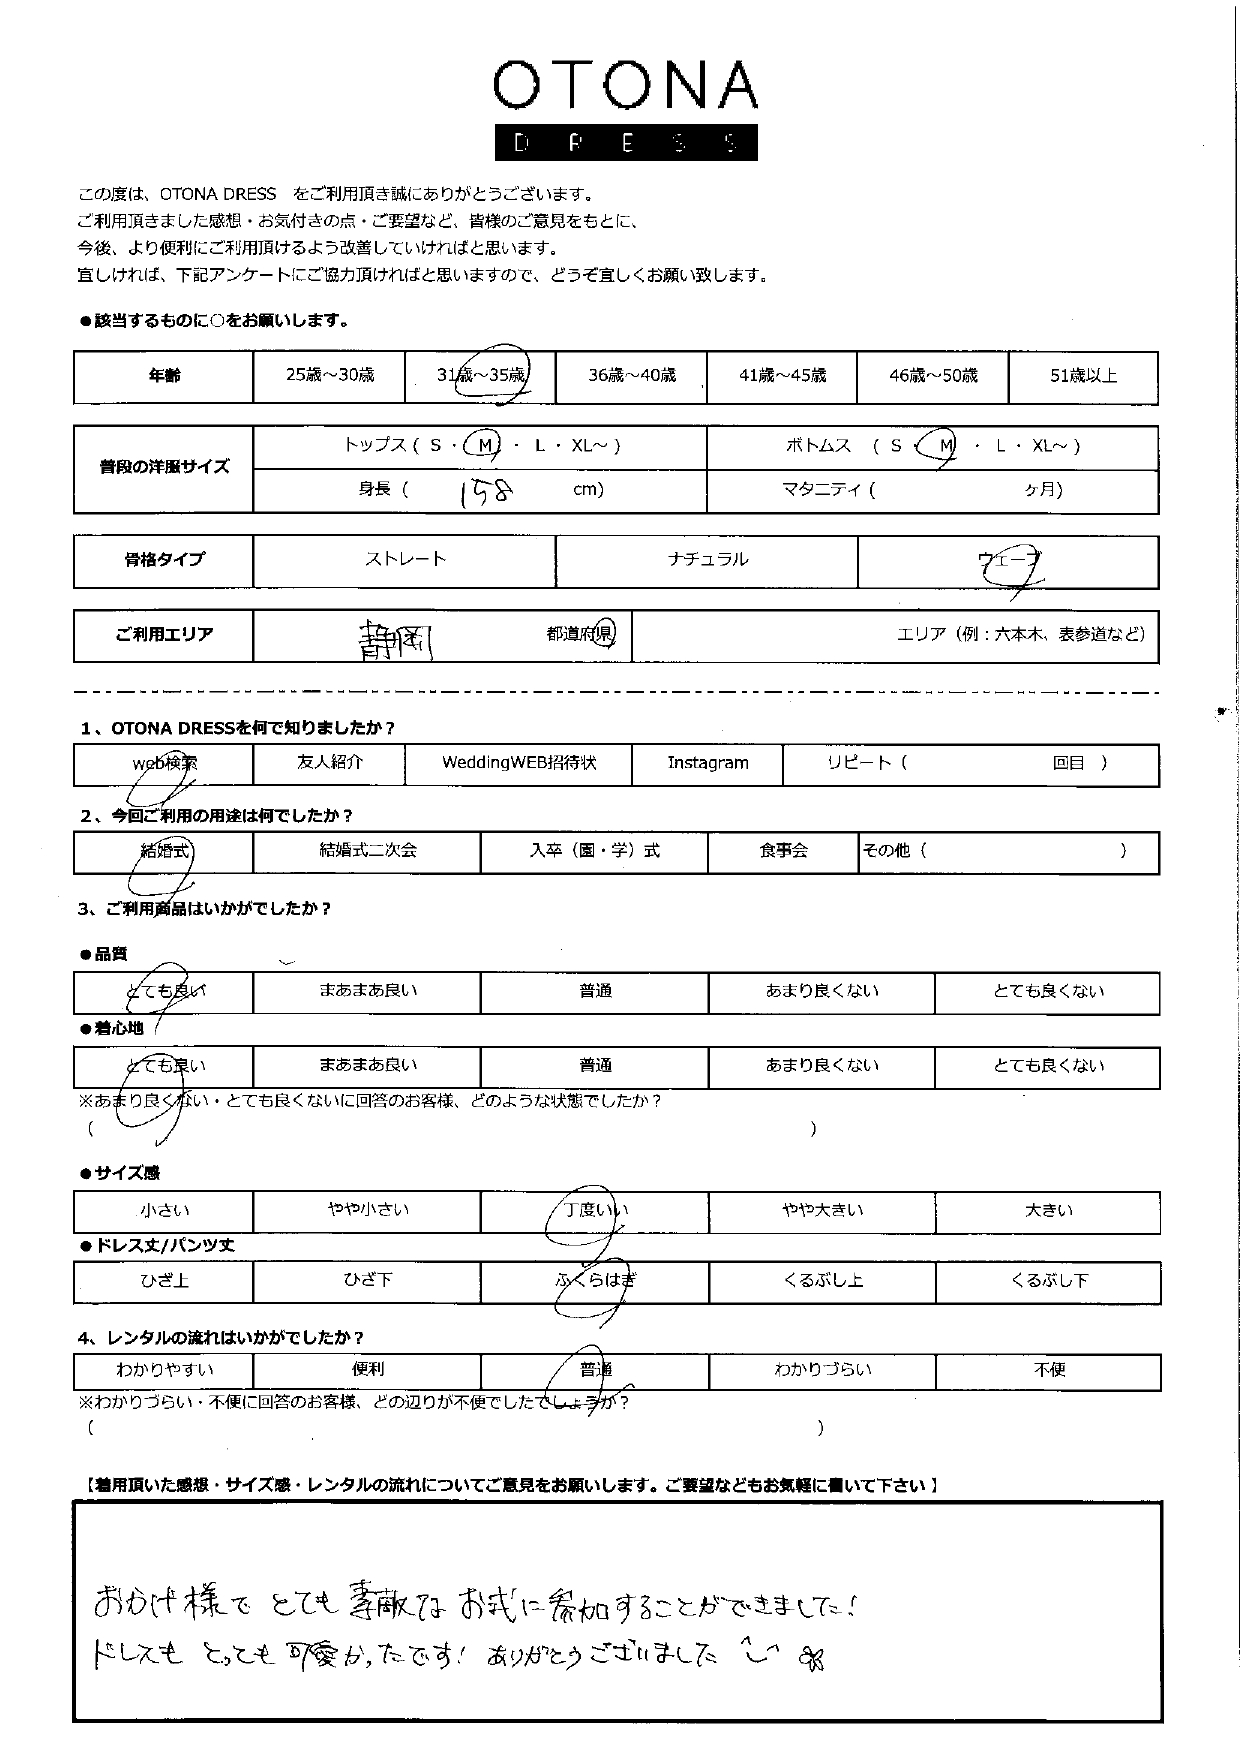 OTONA
DRESS
この度は、OTONA DRESS　をご利用頂き誠にありがとうございます。
ご利用頂きました感想・お気付きの点・ご要望など、皆様のご意見をもとに、
今後、より便利にご利用頂けるよう改善していければと思います。
宜しければ、下記アンケートにご協力頂ければと思いますので、どうぞ宜しくお願い致します。
●該当するものに○をお願いします。
年齢 25歳～30歳 31歳～35歳 36歳～40歳 41歳～45歳 46歳～50歳 51歳以上
普段の洋服サイズ トップス ( S ・ M ・ L ・ XL～ ) ボトムス ( S ・ M ・ L ・ XL～ )
身長 ( 158 cm) マタニティ ( ヶ月)
骨格タイプ ストレート ナチュラル ウェーブ
ご利用エリア 静岡 都道府県 エリア（例：六本木、表参道など）
1、OTONA DRESSを何で知りましたか？
web検索 友人紹介 WeddingWEB招待状 Instagram リピート（ 回目 ）
2、今回ご利用の用途は何でしたか？
結婚式 結婚式二次会 入卒（園・学）式 食事会 その他（ ）
3、ご利用商品はいかがでしたか？
●品質
とても良い まあまあ良い 普通 あまり良くない とても良くない
●着心地
とても良い まあまあ良い 普通 あまり良くない とても良くない
※あまり良くない・とても良くないに回答のお客様、どのような状態でしたか？
（ ）
●サイズ感
小さい やや小さい 丁度いい やや大きい 大きい
●ドレス丈/パンツ丈
ひざ上 ひざ下 ふくらはぎ くるぶし上 くるぶし下
4、レンタルの流れはいかがでしたか？
わかりやすい 便利 普通 わかりづらい 不便
※わかりづらい・不便に回答のお客様、どの辺りが不便でしたでしょうか？
（ ）
【着用頂いた感想・サイズ感・レンタルの流れについてご意見をお願いします。ご要望などもお気軽に書いて下さい】
おかげ様で とても 素敵な お式に 参加することができました！
ドレスも とっても 可愛かったです！ ありがとうございました